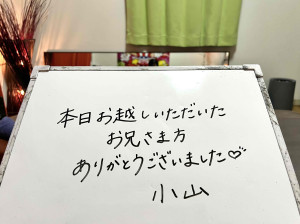 本日お越しいただいた
お兄さま方
ありがとうございました♡
小山